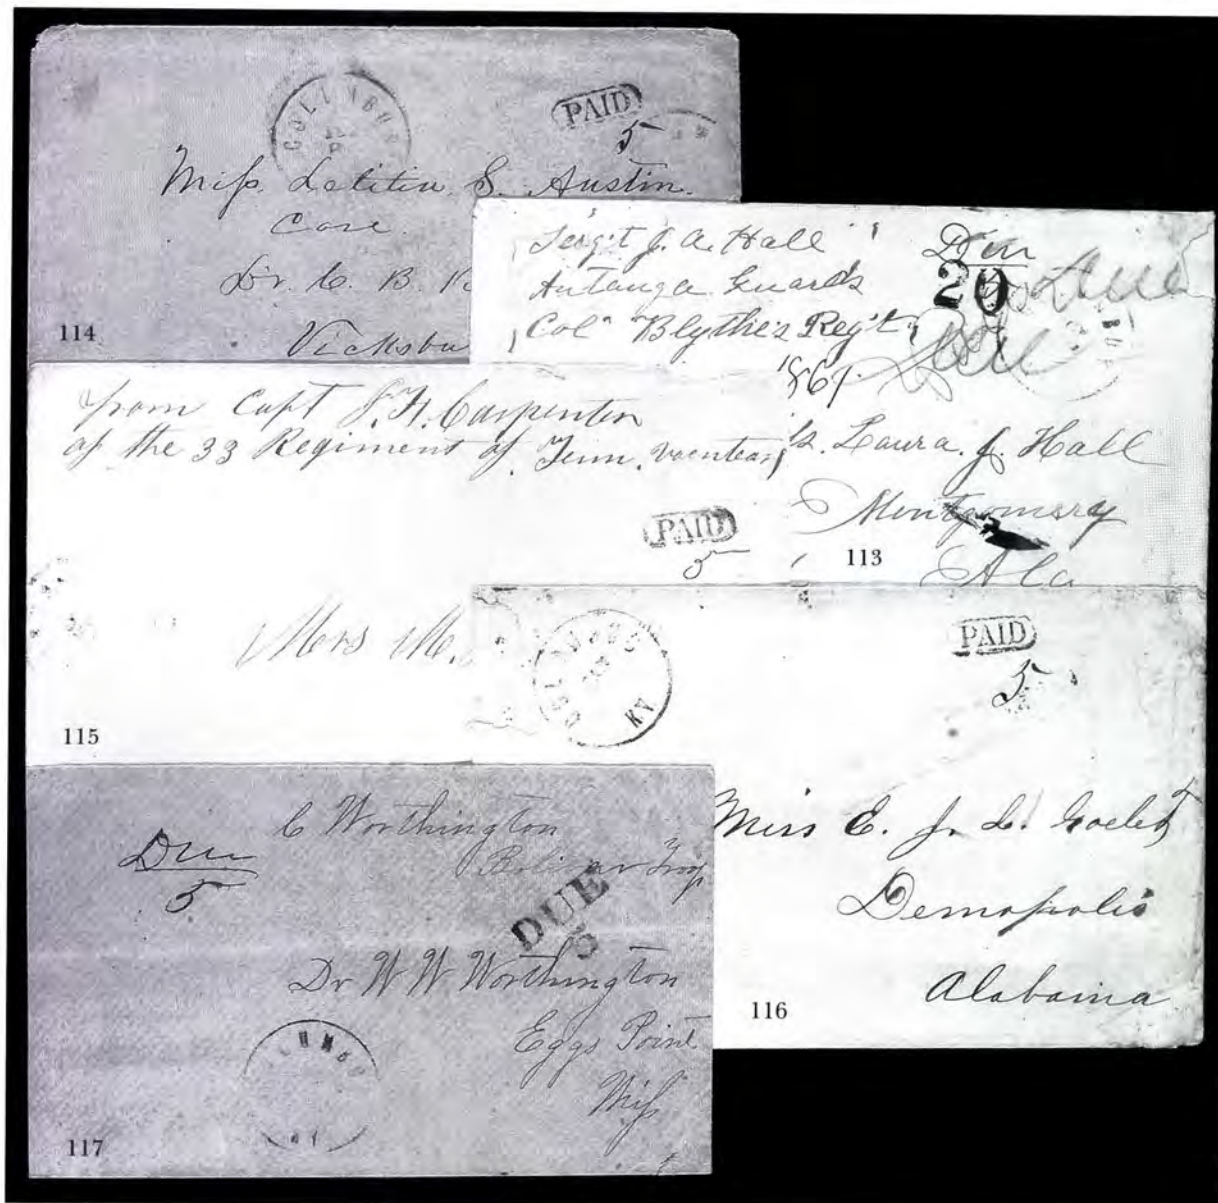 COLUMBUS
PAID
5
Miss. Letitia S. Austin.
Care
Dr. C. B.
Vicksbu
114
Serg't J. A. Hall
Autauga Guards
Col Blythe's Reg't
1861
Due
20
Due
Due
Laura. J. Hall
Montgomery
Ala
113
from Capt Carpenter
of the 33 Regiment of Tenn.
PAID
5
Mrs M.
115
COLUMBUS
KY
PAID
5
Miss E. J. L. Goelet
Demopolis
Alabama
116
C Worthington
Bolivar Troop
Due
5
DUE
5
Dr W W Worthington
Eggs Point
Miss
117